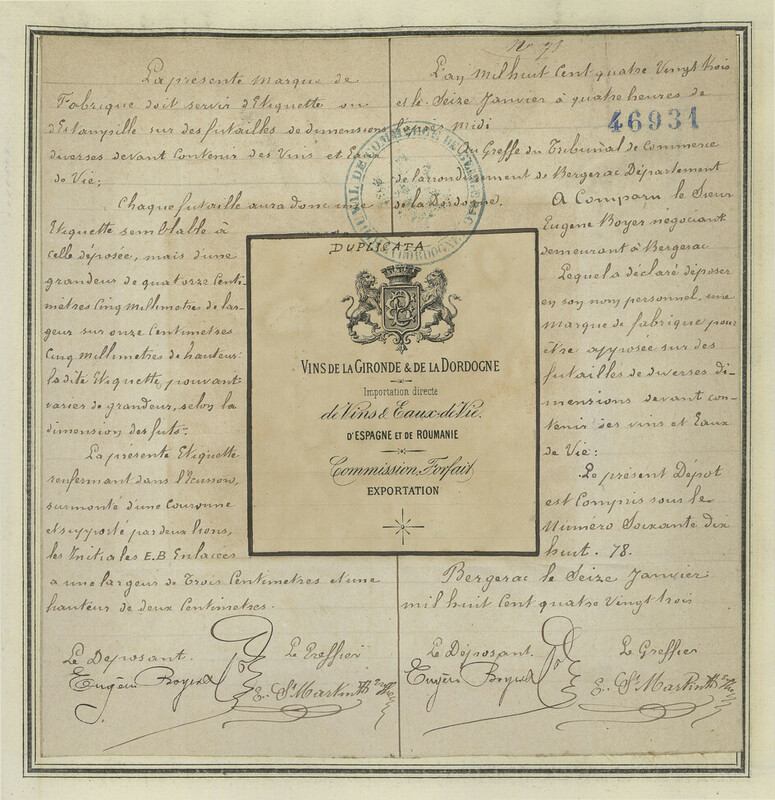 La présente Marque de
Fabrique doit servir d'Etiquette ou
d'Estampille sur des futailles de dimensions
diverses devant Contenir des Vins et Eaux
de Vie;
Chaque futaille aura donc une
Etiquette semblable à
celle déposée, mais d'une
grandeur de quatorze Centi-
mètres Cinq Millimetres de lar-
geur sur onze Centimetres
Cinq Millimetres de hauteur;
la dite Etiquette, pouvant
varier de grandeur, selon la
dimension des futs.
La présente Etiquette
renfermant dans l'Ecusson,
surmonté d'une Couronne
et supporté par deux lions,
les Initiales E.B Enlacées
a une largeur de Trois Centimetres et une
hauteur de deux Centimètres.
Le Déposant.
Le Greffier
Eugène Boyer
E. St Martin
DUPLICATA
VINS DE LA GIRONDE & DE LA DORDOGNE
Importation directe
de Vins & Eaux-de-Vie.
D'ESPAGNE ET DE ROUMANIE
Commission, Forfait
EXPORTATION
L'an Mil huit Cent quatre Vingt trois
et le Seize Janvier à quatre heures de
l'après Midi
46931
Au Greffe du Tribunal de Commerce
de l'arrondissement de Bergerac Département
de la Dordogne.
A Comparu le Sieur
Eugène Boyer négociant
demeurant à Bergerac
Lequel a déclaré déposer
en son nom personnel, une
Marque de fabrique pour
être apposée sur des
futailles de diverses di-
mensions devant con-
tenir des vins et Eaux
de Vie:
Le présent Dépôt
est Compris sous le
Numéro Soixante dix
huit. 78.
Bergerac le Seize Janvier
mil huit Cent quatre Vingt trois
Le Déposant
Le Greffier
Eugène Boyer
E. St Martin